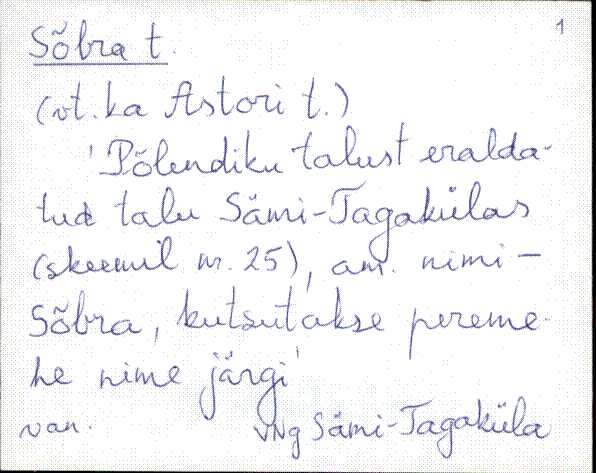 1
Sõbra t.
(vt. ka Astori t.)
'Põlendiku talust eralda-
tud talu Sämi-Tagakülas
(skeemil nr. 25), am. nimi -
Sõbra, kutsutakse pereme-
he nime järgi'
van. VNg Sämi-Tagaküla